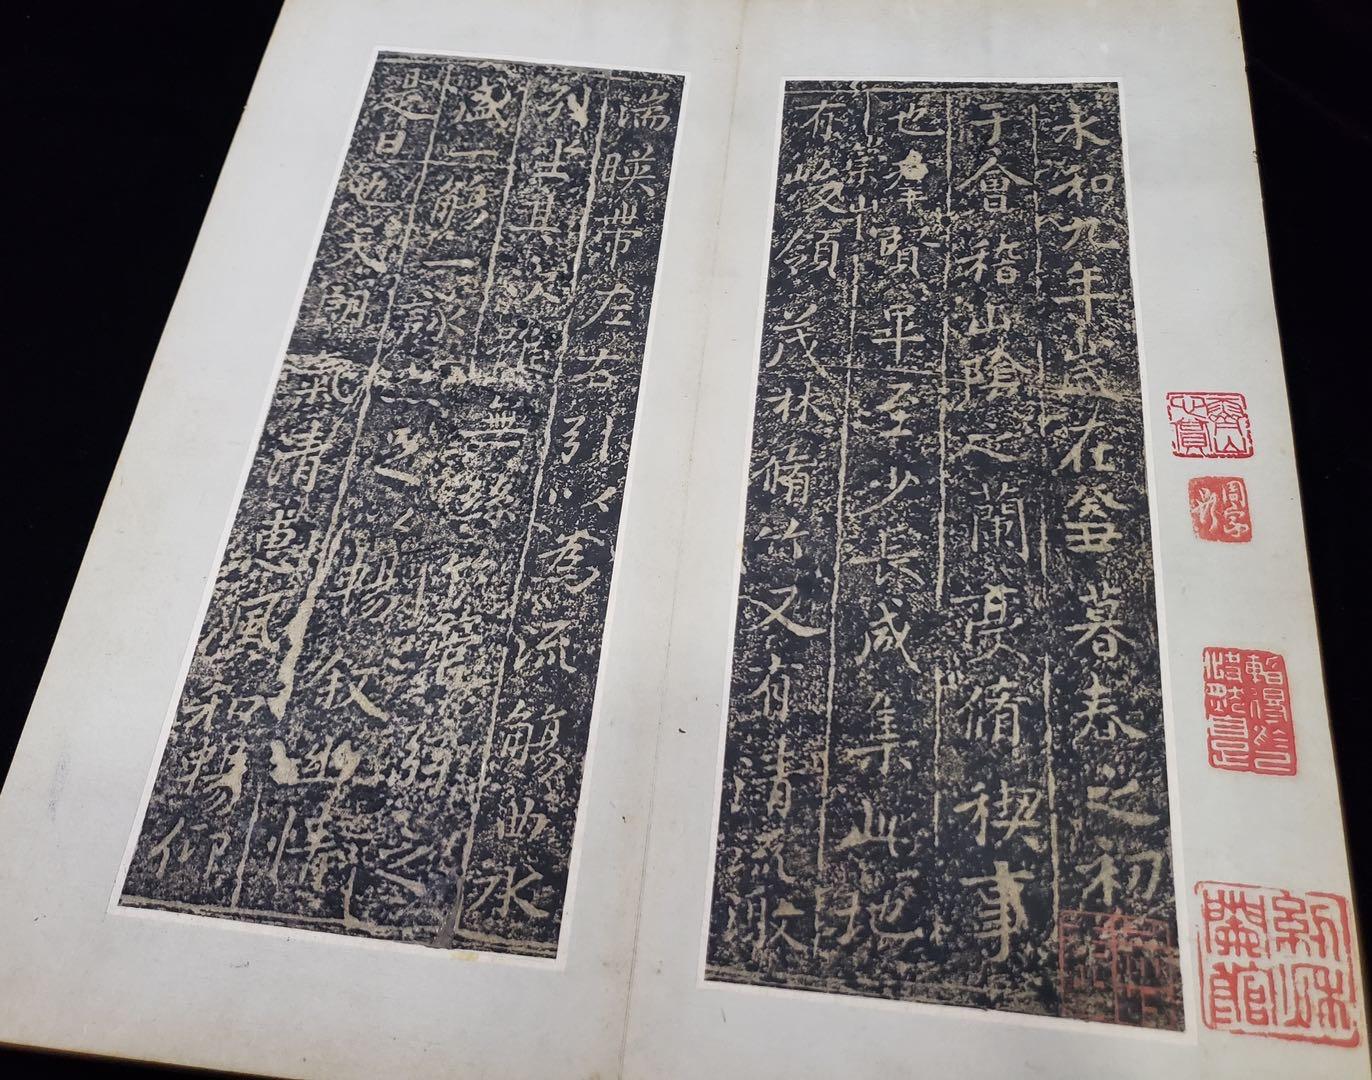 永和九年歲在癸丑暮春之初
于會稽山陰之蘭亭脩禊事
也羣賢畢至少長咸集此地
有崇山峻領茂林脩竹又有清流激
湍映帶左右引以為流觴曲水
列坐其次雖無絲竹管弦之
盛一觴一詠亦足以暢敘幽情
是日也天朗氣清惠風和暢仰